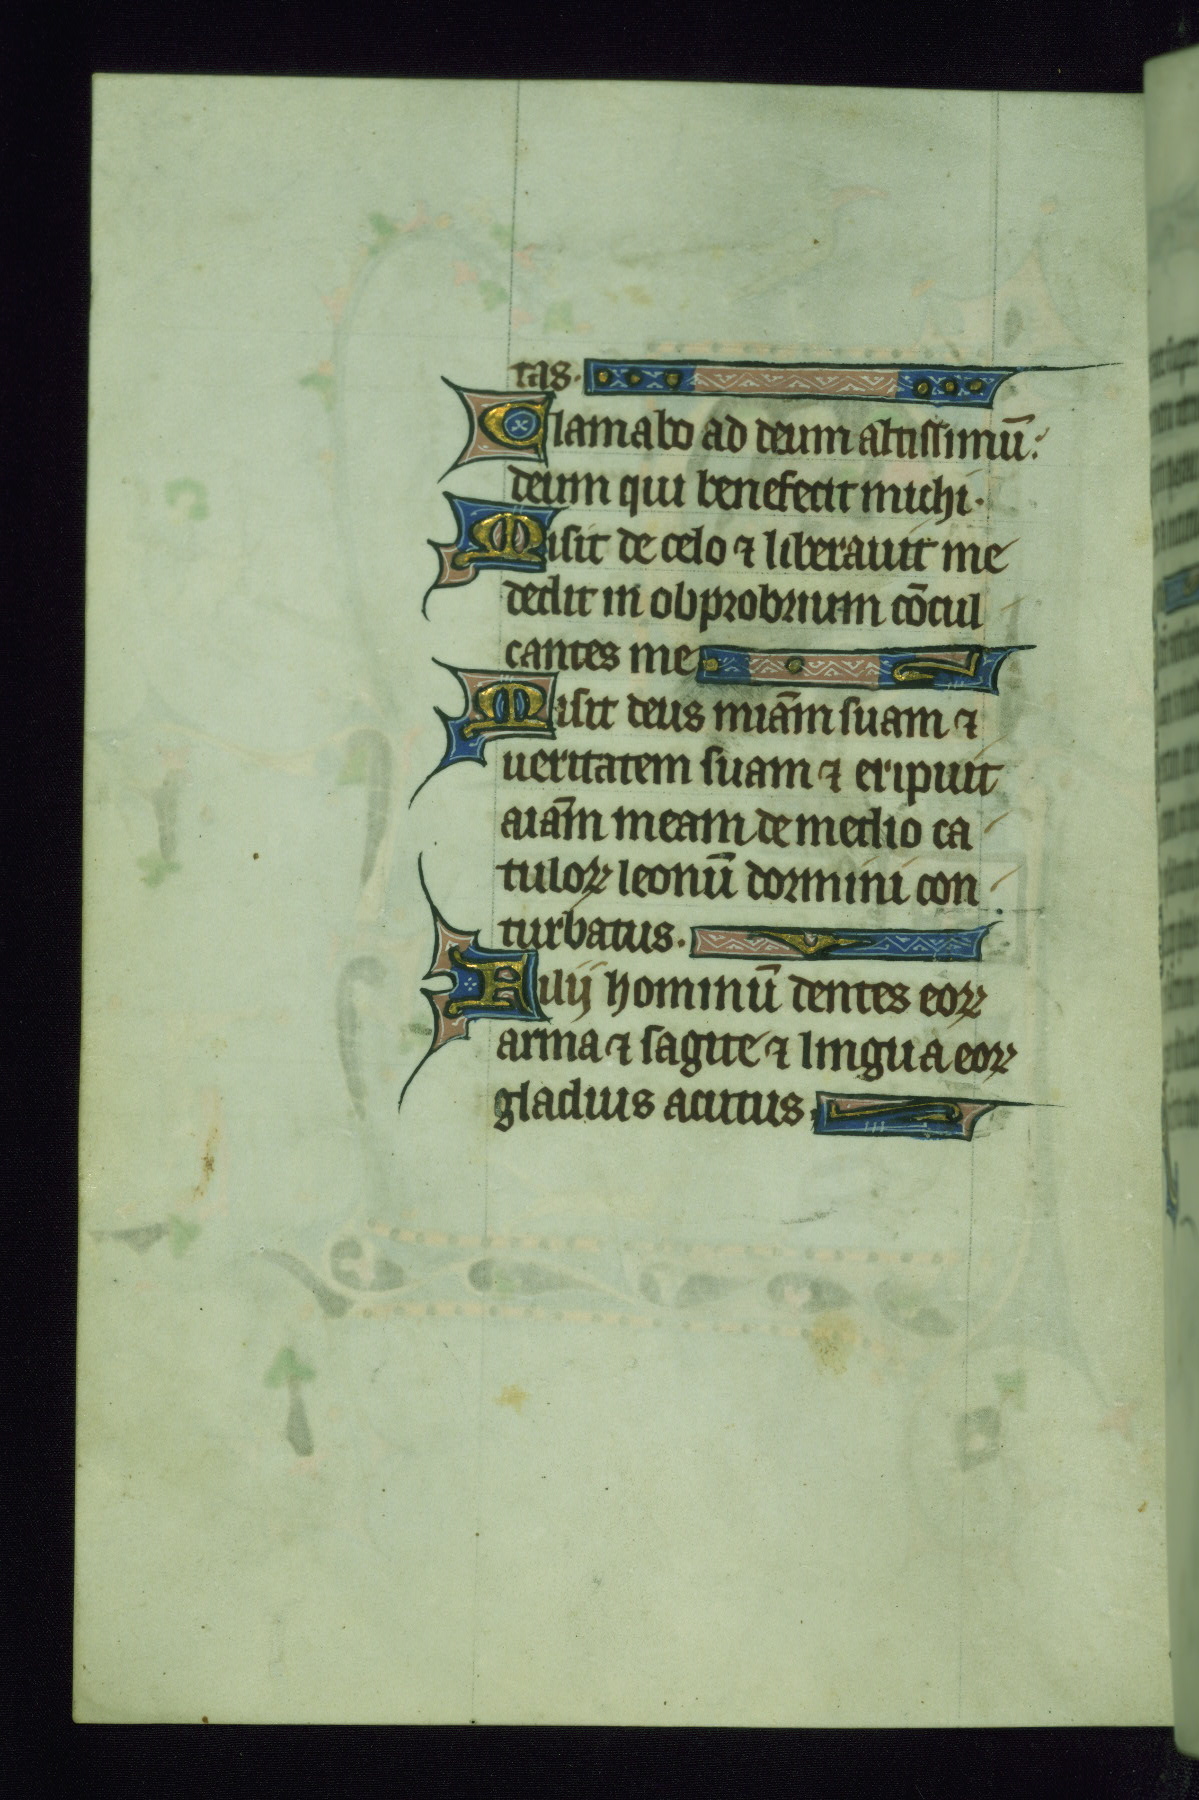 tas.
Clamabo ad deum altissimū:
deum qui benefecit michi.
Misit de celo ⁊ liberauit me
dedit in obprobrium cōcul
cantes me
Misit deus miām suam ⁊
ueritatem suam ⁊ eripuit
aiām meam de medio ca
tuloꝝ leonū dormini con
turbatus.
Filij hominū dentes eoꝝ
arma ⁊ sagite ⁊ lingua eoꝝ
gladius acutus.